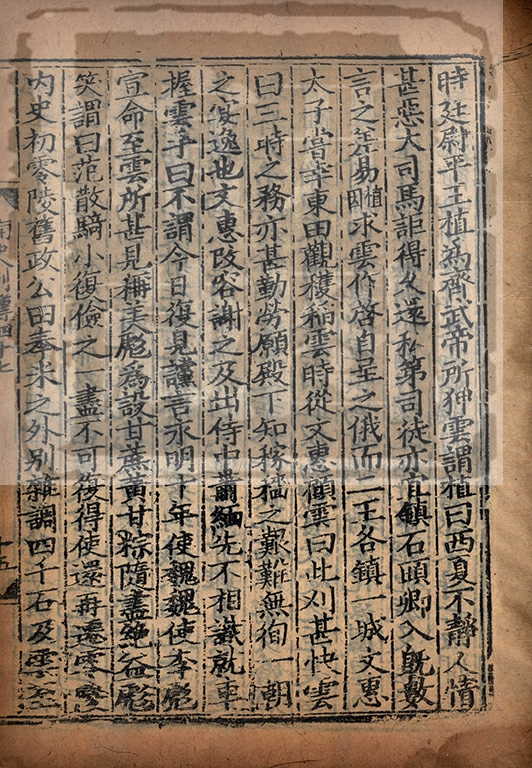 時廷尉平王植爲齊武帝所狎雲謂植曰西夏不靜人情
甚惡大司馬詎得久還私第司徒亦宜鎮石頭卿入既數
言之差易植因求雲作啓自呈之俄而二王各鎮一城文惠
太子嘗幸東田觀穫稻雲時從文惠顧雲曰此刈甚快雲
曰三時之務亦甚勤勞願殿下知稼穡之艱難無徇一朝
之宴逸也文惠改容謝之及出侍中蕭緬先不相識就車
握雲手曰不謂今日復見讜言永明十年使魏魏使李彪
宣命至雲所甚見稱美彪爲設甘蔗黃甘粽隨盡絕益彪
笑謂曰范散騎小復儉之一盡不可復得使還再遷零陵
内史初零陵舊政公田奉米之外別雜調四千石及雲至
南史列傳四十七
十五